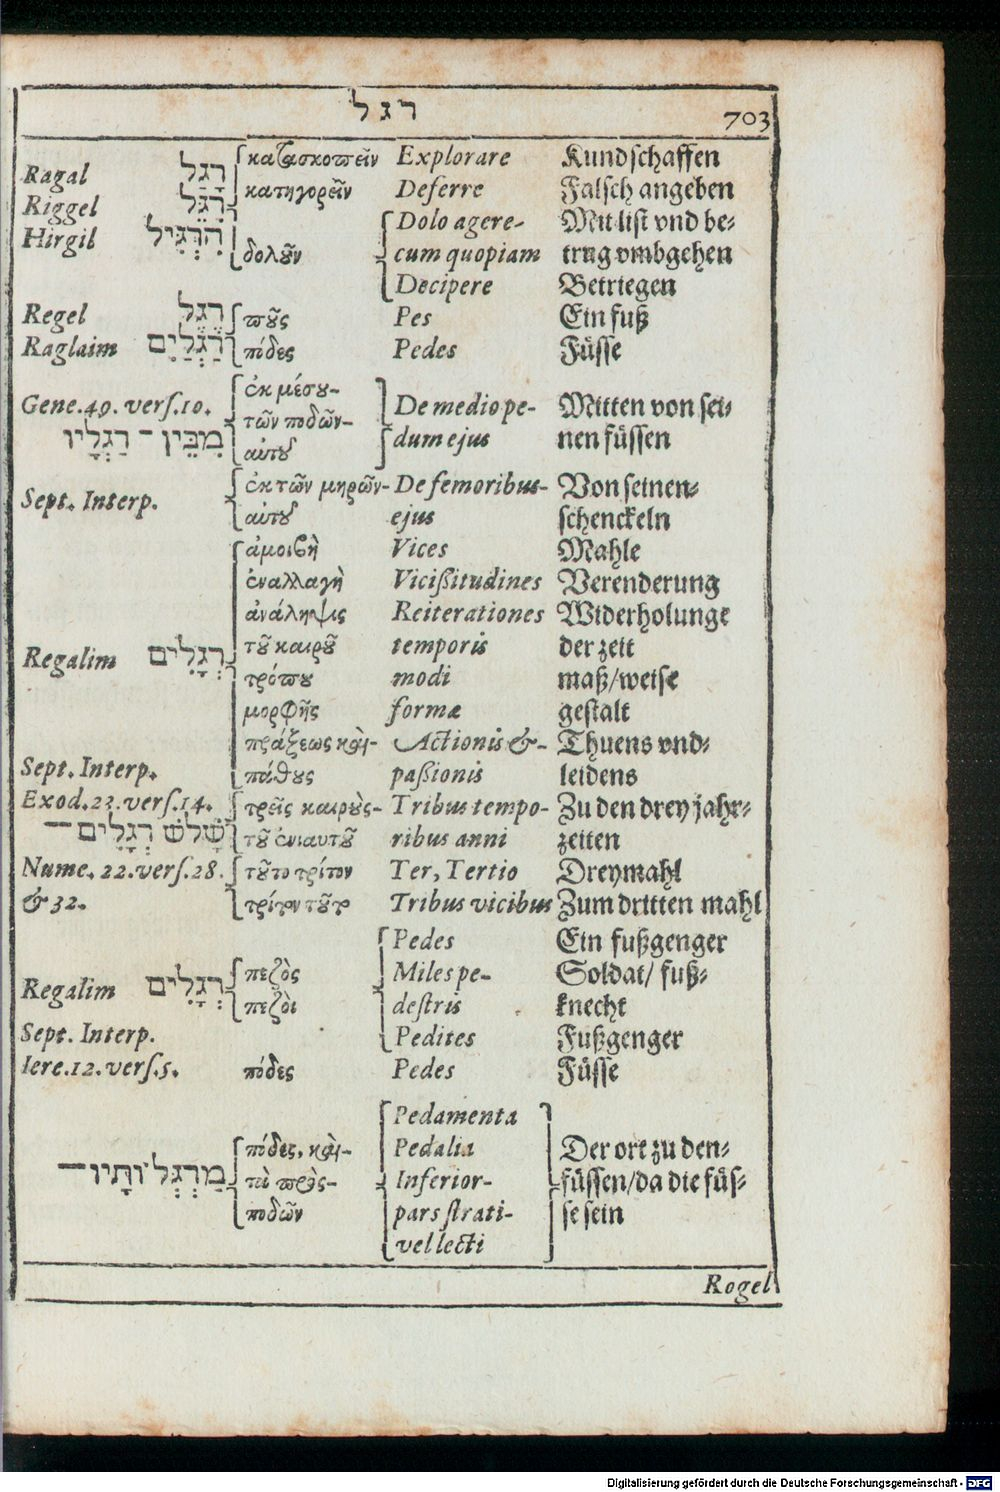 רגל
703
Ragal רָגַל κατασκοπεῖν Explorare Kundschaffen
Riggel רִגֵּל κατηγορεῖν Deferre Falsch angeben
Hirgil הִרְגִּיל δολοῦν Dolo agere- Mit list vnd be-
cum quopiam trug vmbgehen
Decipere Betriegen
Regel רֶגֶל ποῦς Pes Ein fuß
Raglaim רַגְלַיִם πόδες Pedes Füsse
Gene.49. vers.10. ἐκ μέσου- De medio pe- Mitten von sei-
מִבֵּין־רַגְלָיו τῶν ποδῶν- dum ejus nen füssen
αὐτοῦ
Sept. Interp. ἐκ τῶν μηρῶν- De femoribus- Von seinen-
αὐτοῦ ejus schenckeln
ἀμοιβὴ Vices Mahle
ἐναλλαγὴ Vicißitudines Verenderung
ἀνάληψις Reiterationes Widerholunge
Regalim רְגָלִים τοῦ καιροῦ temporis der zeit
τρόπου modi maß/weise
μορφῆς formæ gestalt
πράξεως καὶ- Actionis &- Thuens vnd-
Sept. Interp. πάθους paßionis leidens
Exod.23.vers.14. τρεῖς καιροὺς- Tribus tempo- Zu den drey jahr-
שָׁלֹשׁ רְגָלִים— τοῦ ἐνιαυτοῦ ribus anni zeiten
Nume. 22.vers.28. τοῦτο τρίτον Ter, Tertio Dreymahl
& 32. τρίτον τοῦτο Tribus vicibus Zum dritten mahl
Pedes Ein fußgenger
Regalim רְגָלִים πεζὸς Miles pe- Soldat/ fuß-
πεζὸι destris knecht
Sept. Interp. Pedites Fußgenger
Iere.12.vers.5. πόδες Pedes Füsse
Pedamenta
πόδες, καὶ- Pedalia Der ort zu den-
מַרְגְּלוֹתָיו— τὰ πρὸς- Inferior- füssen/da die füs-
ποδῶν pars strati- se sein
vel lecti
Rogel
Digitalisierung gefördert durch die Deutsche Forschungsgemeinschaft - DFG